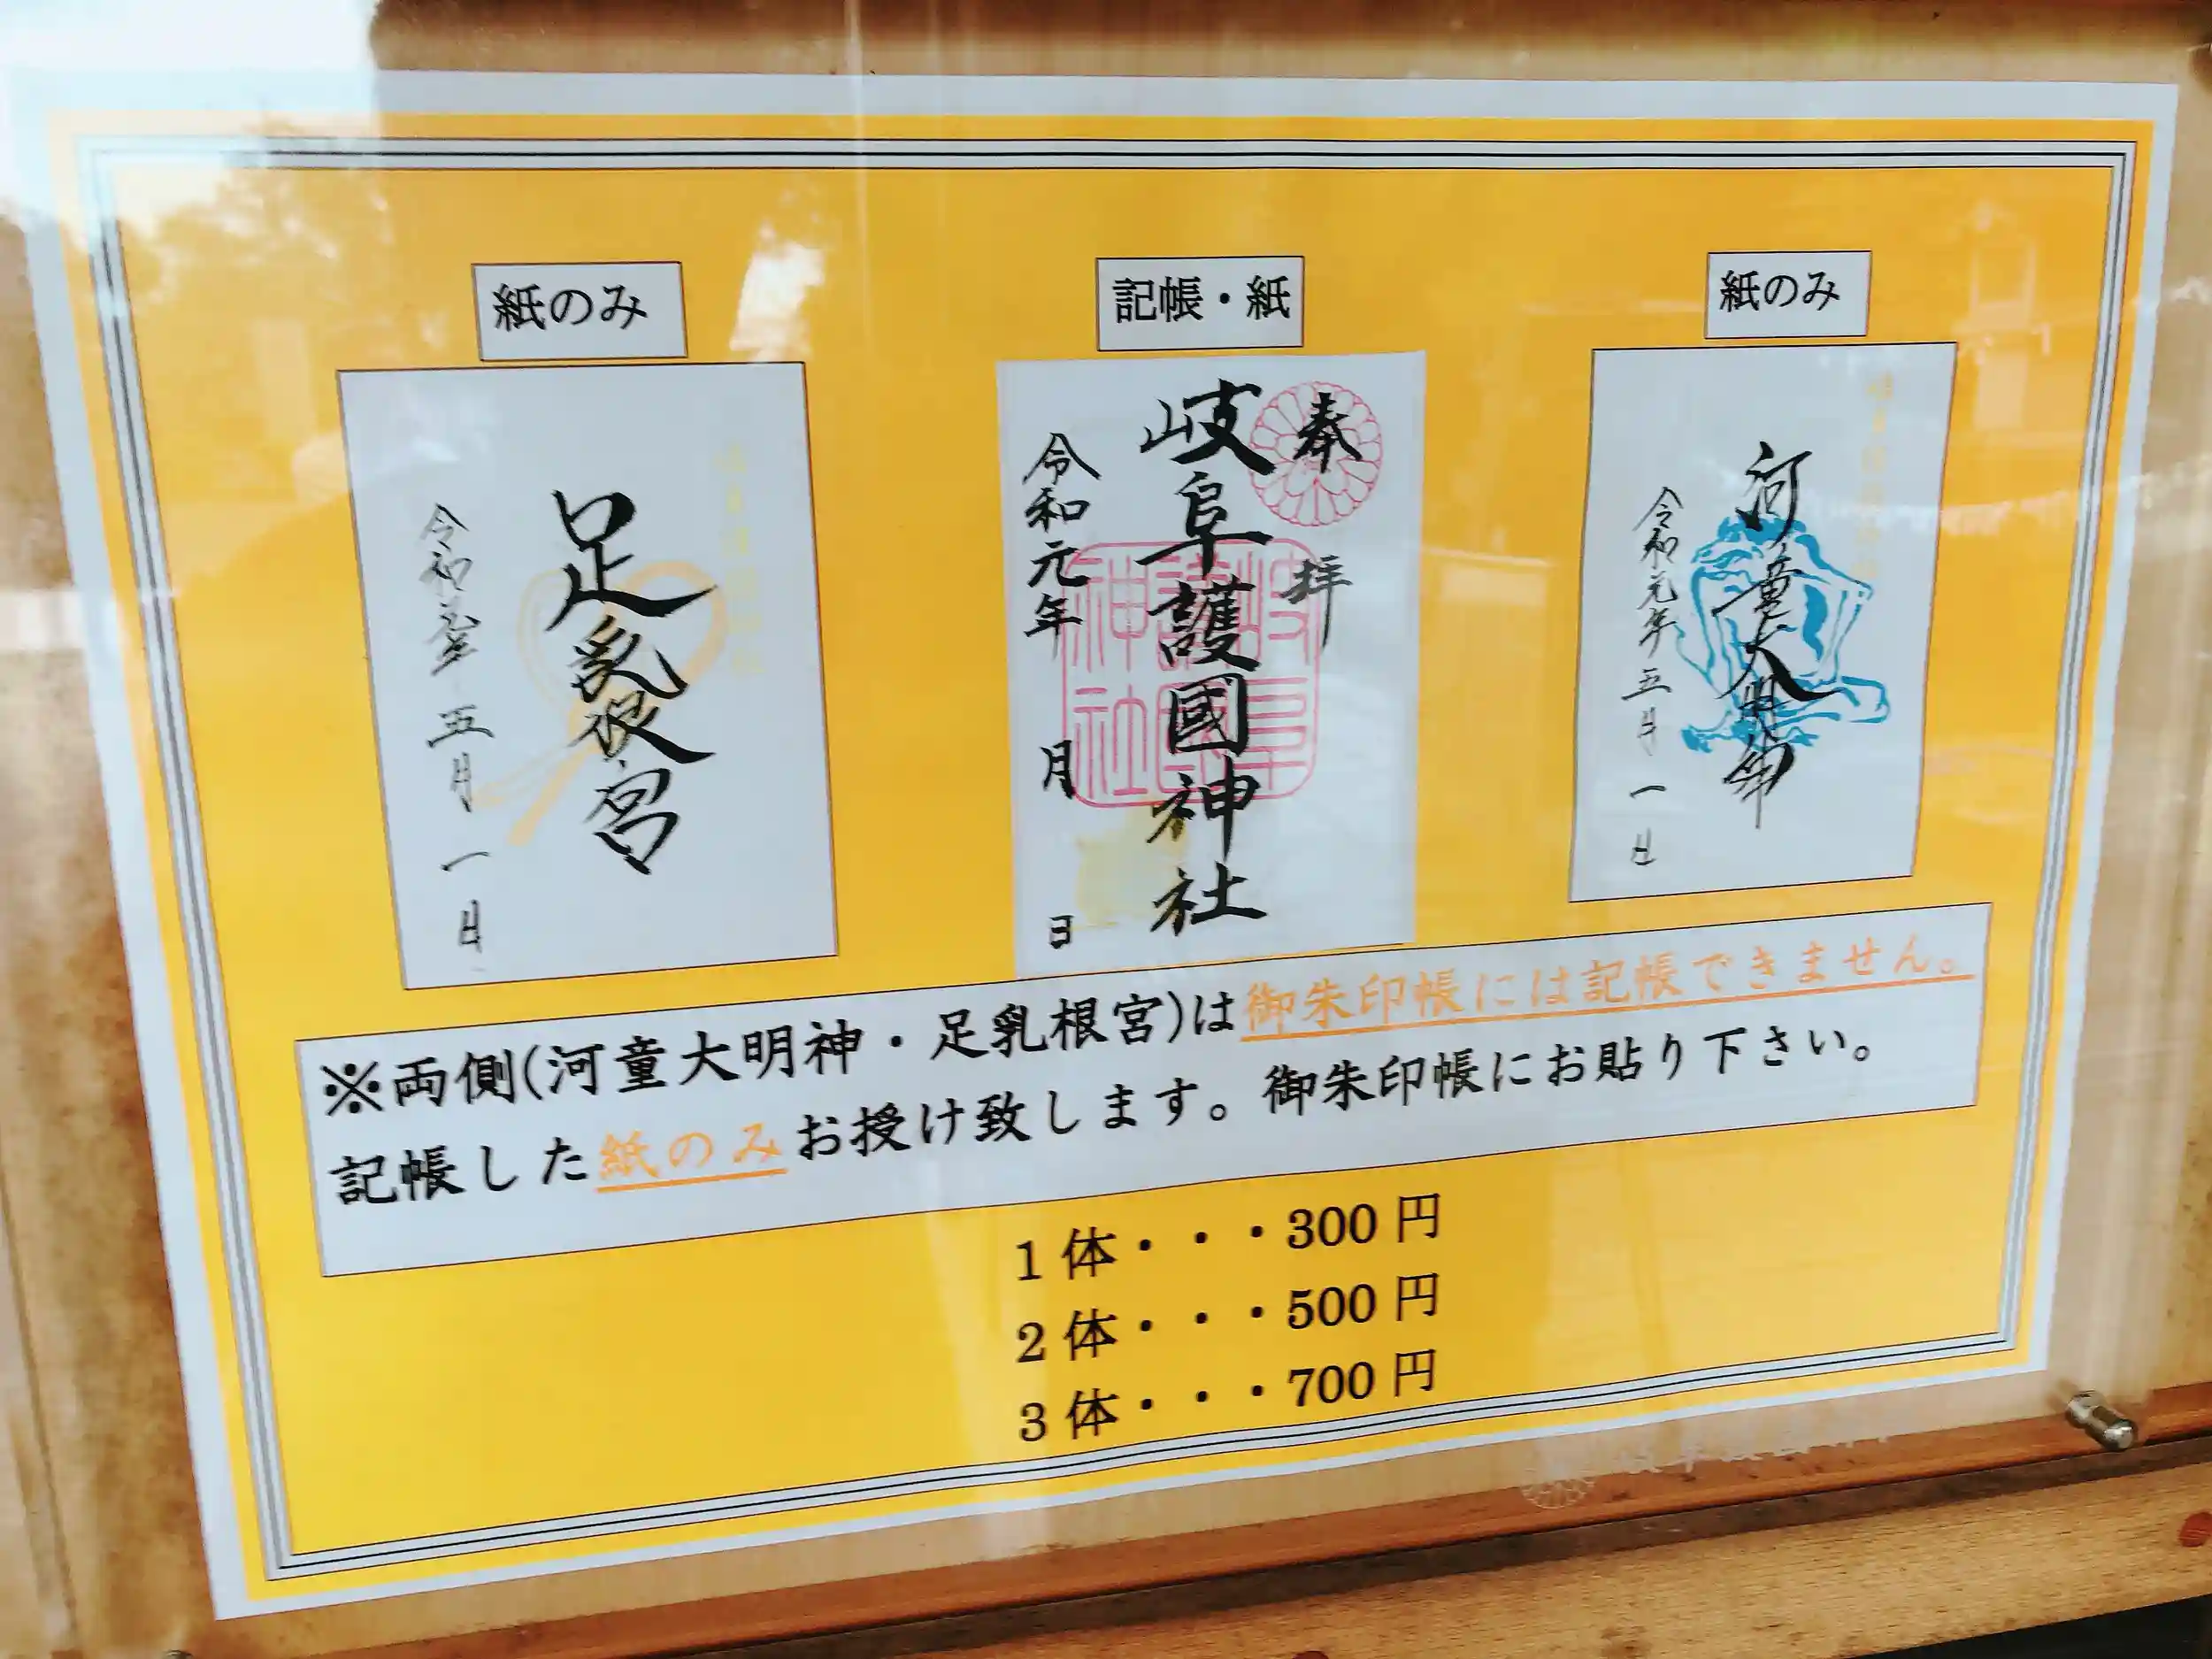 紙のみ
記帳・紙
紙のみ
足乳根宮
令和元年 五月 一日
奉拝
岐阜護國神社
令和元年 月 日
河童大明神
令和元年 五月 一日
※両側(河童大明神・足乳根宮)は御朱印帳には記帳できません。
記帳した紙のみお授け致します。御朱印帳にお貼り下さい。
1体・・・300円
2体・・・500円
3体・・・700円